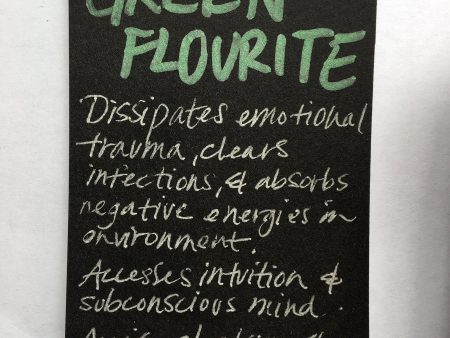 GREEN
FLOURITE
Dissipates emotional
trauma, clears
infections, & absorbs
negative energies in
environment.
Accesses intuition &
subconscious mind.